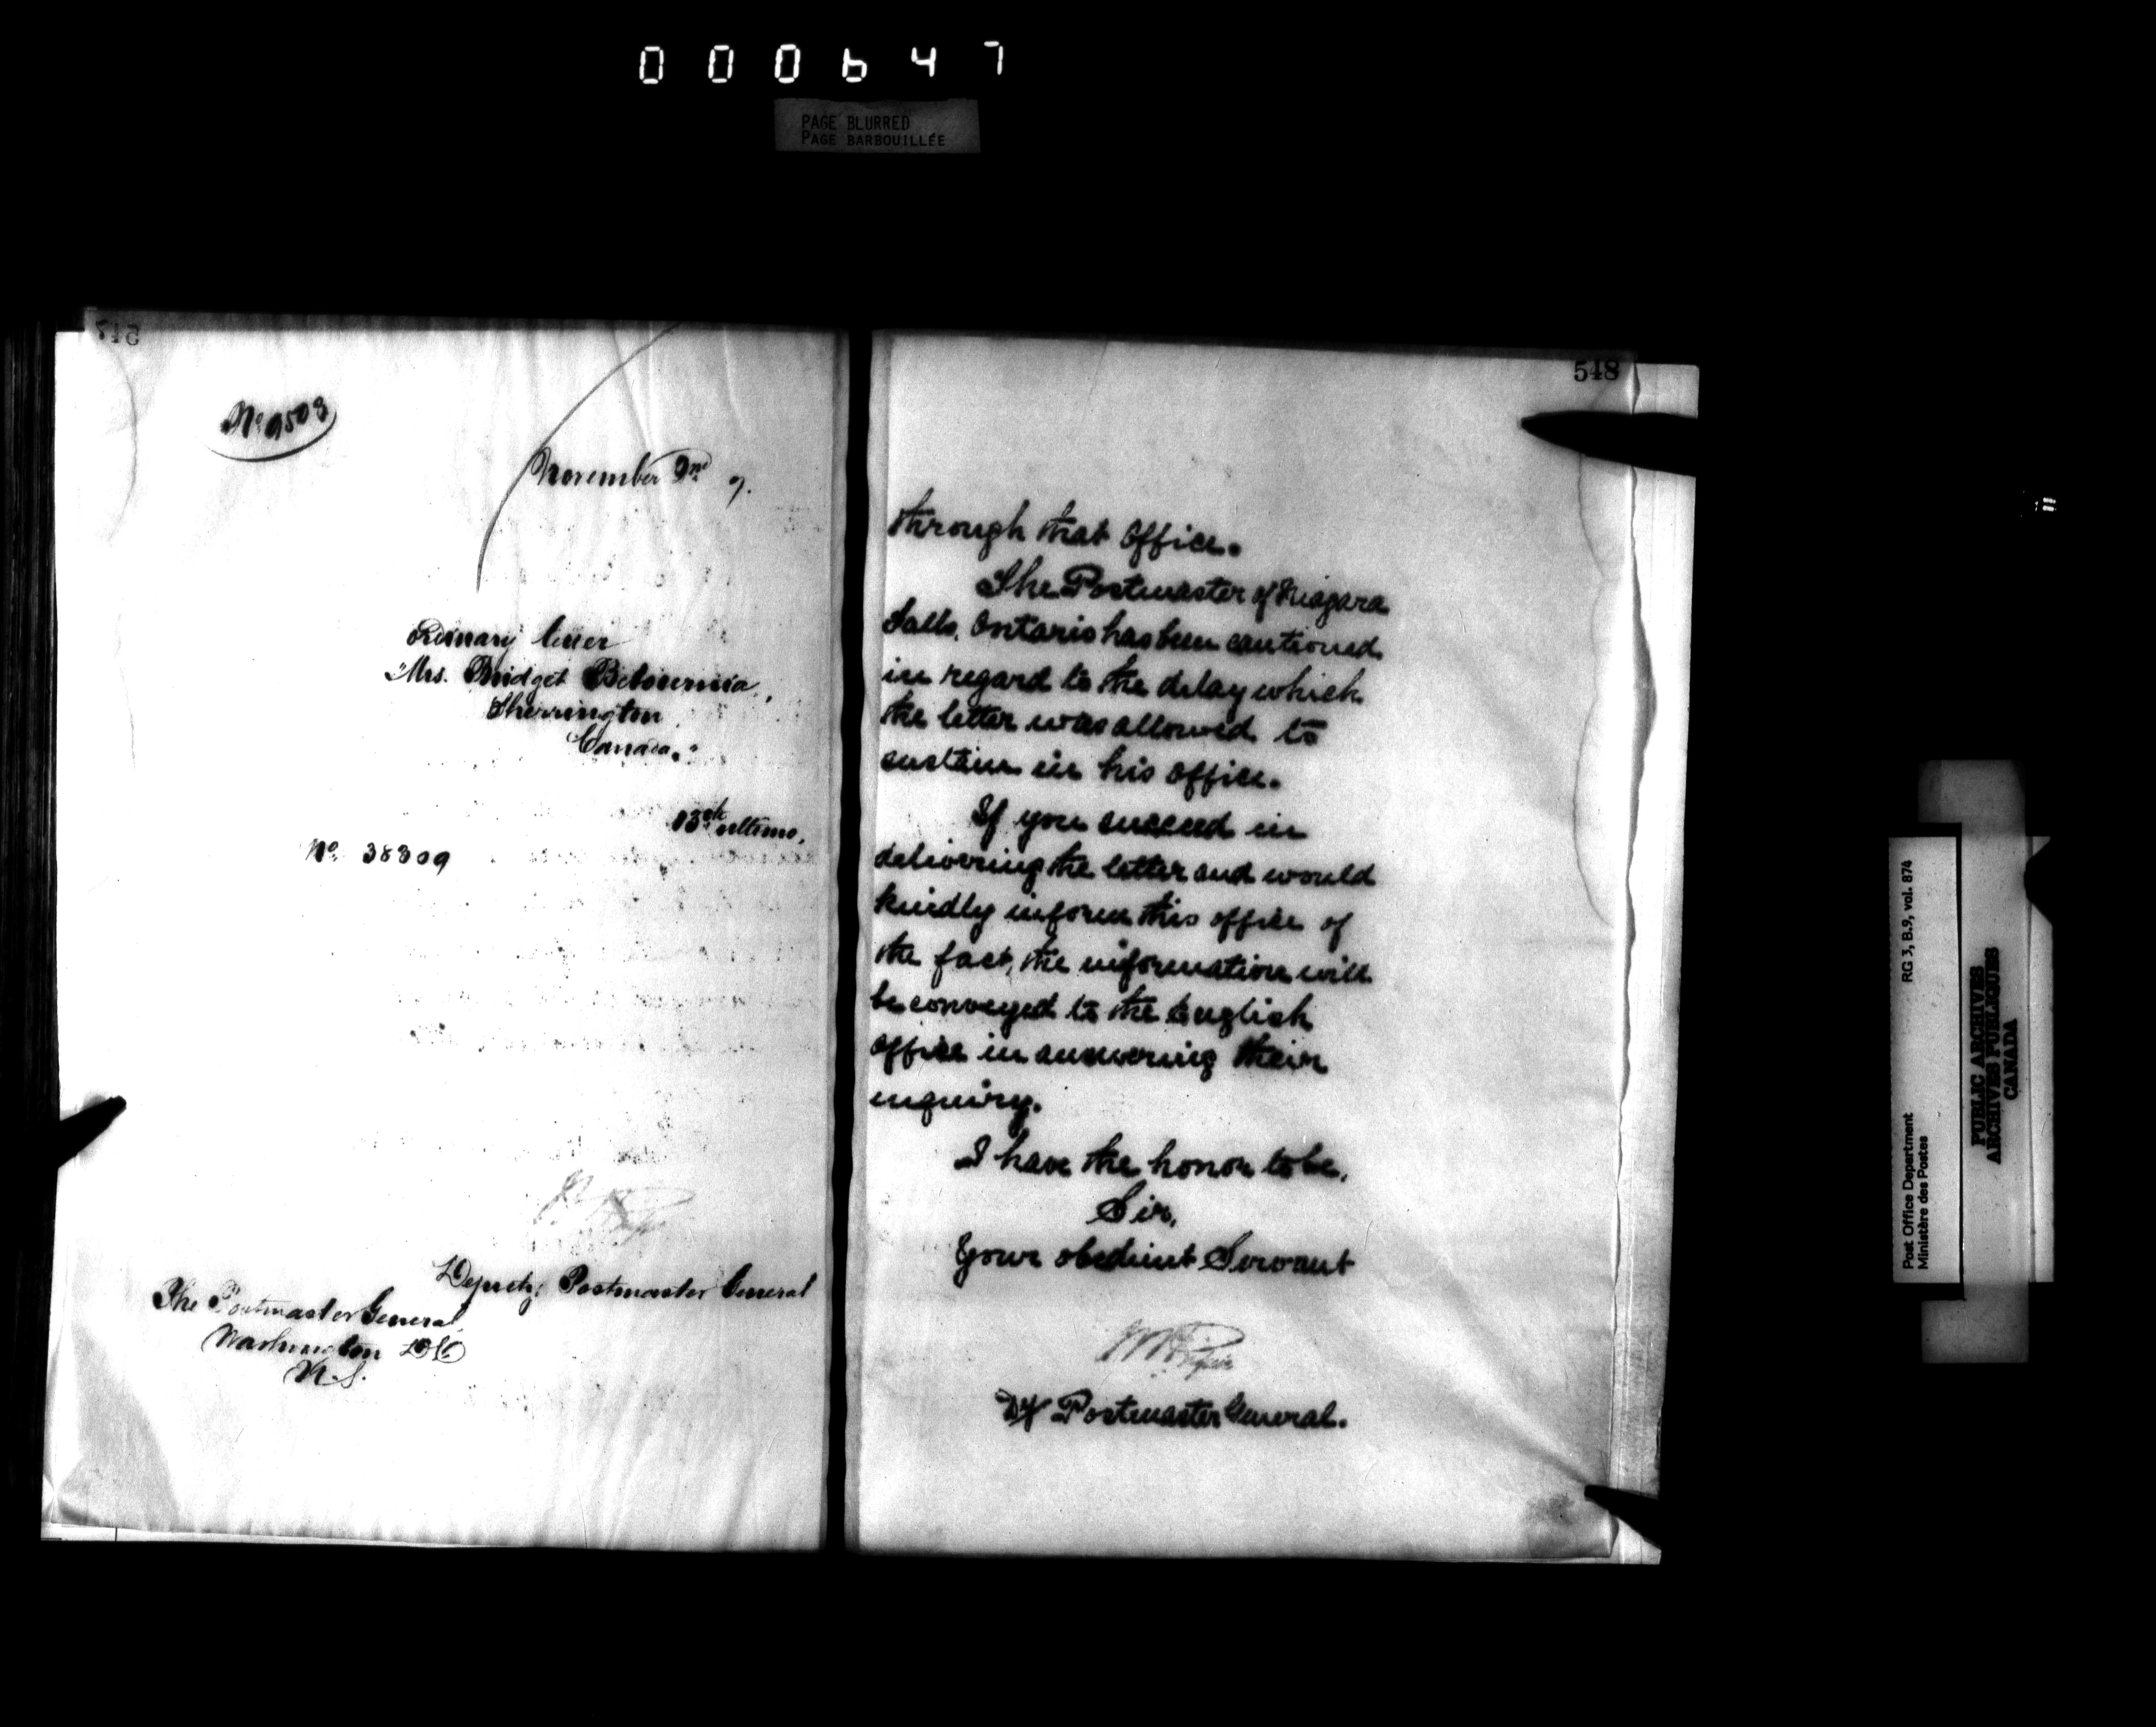 000647
PAGE BLURRED
PAGE BARBOUILLÉE
No 9503
November 2nd 7.
Ordinary letter
"Mrs. Bridget
Sherrington
Canada."
13th ultimo,
No 38309
Deputy Postmaster General
The Postmaster General
Washington DC
U.S.
548
through that Office.
The Postmaster of Niagara
Falls, Ontario has been cautioned
in regard to the delay which
the letter was allowed to
sustain in his office.
If you succeed in
delivering the letter and would
kindly inform this office of
the fact, the information will
be conveyed to the English
Office in answering their
inquiry.
I have the honor to be,
Sir,
Your obedient Servant
Dy Postmaster General.
Post Office Department
Ministère des Postes
RG 3, B.9, vol. 874
PUBLIC ARCHIVES
ARCHIVES PUBLIQUES
CANADA